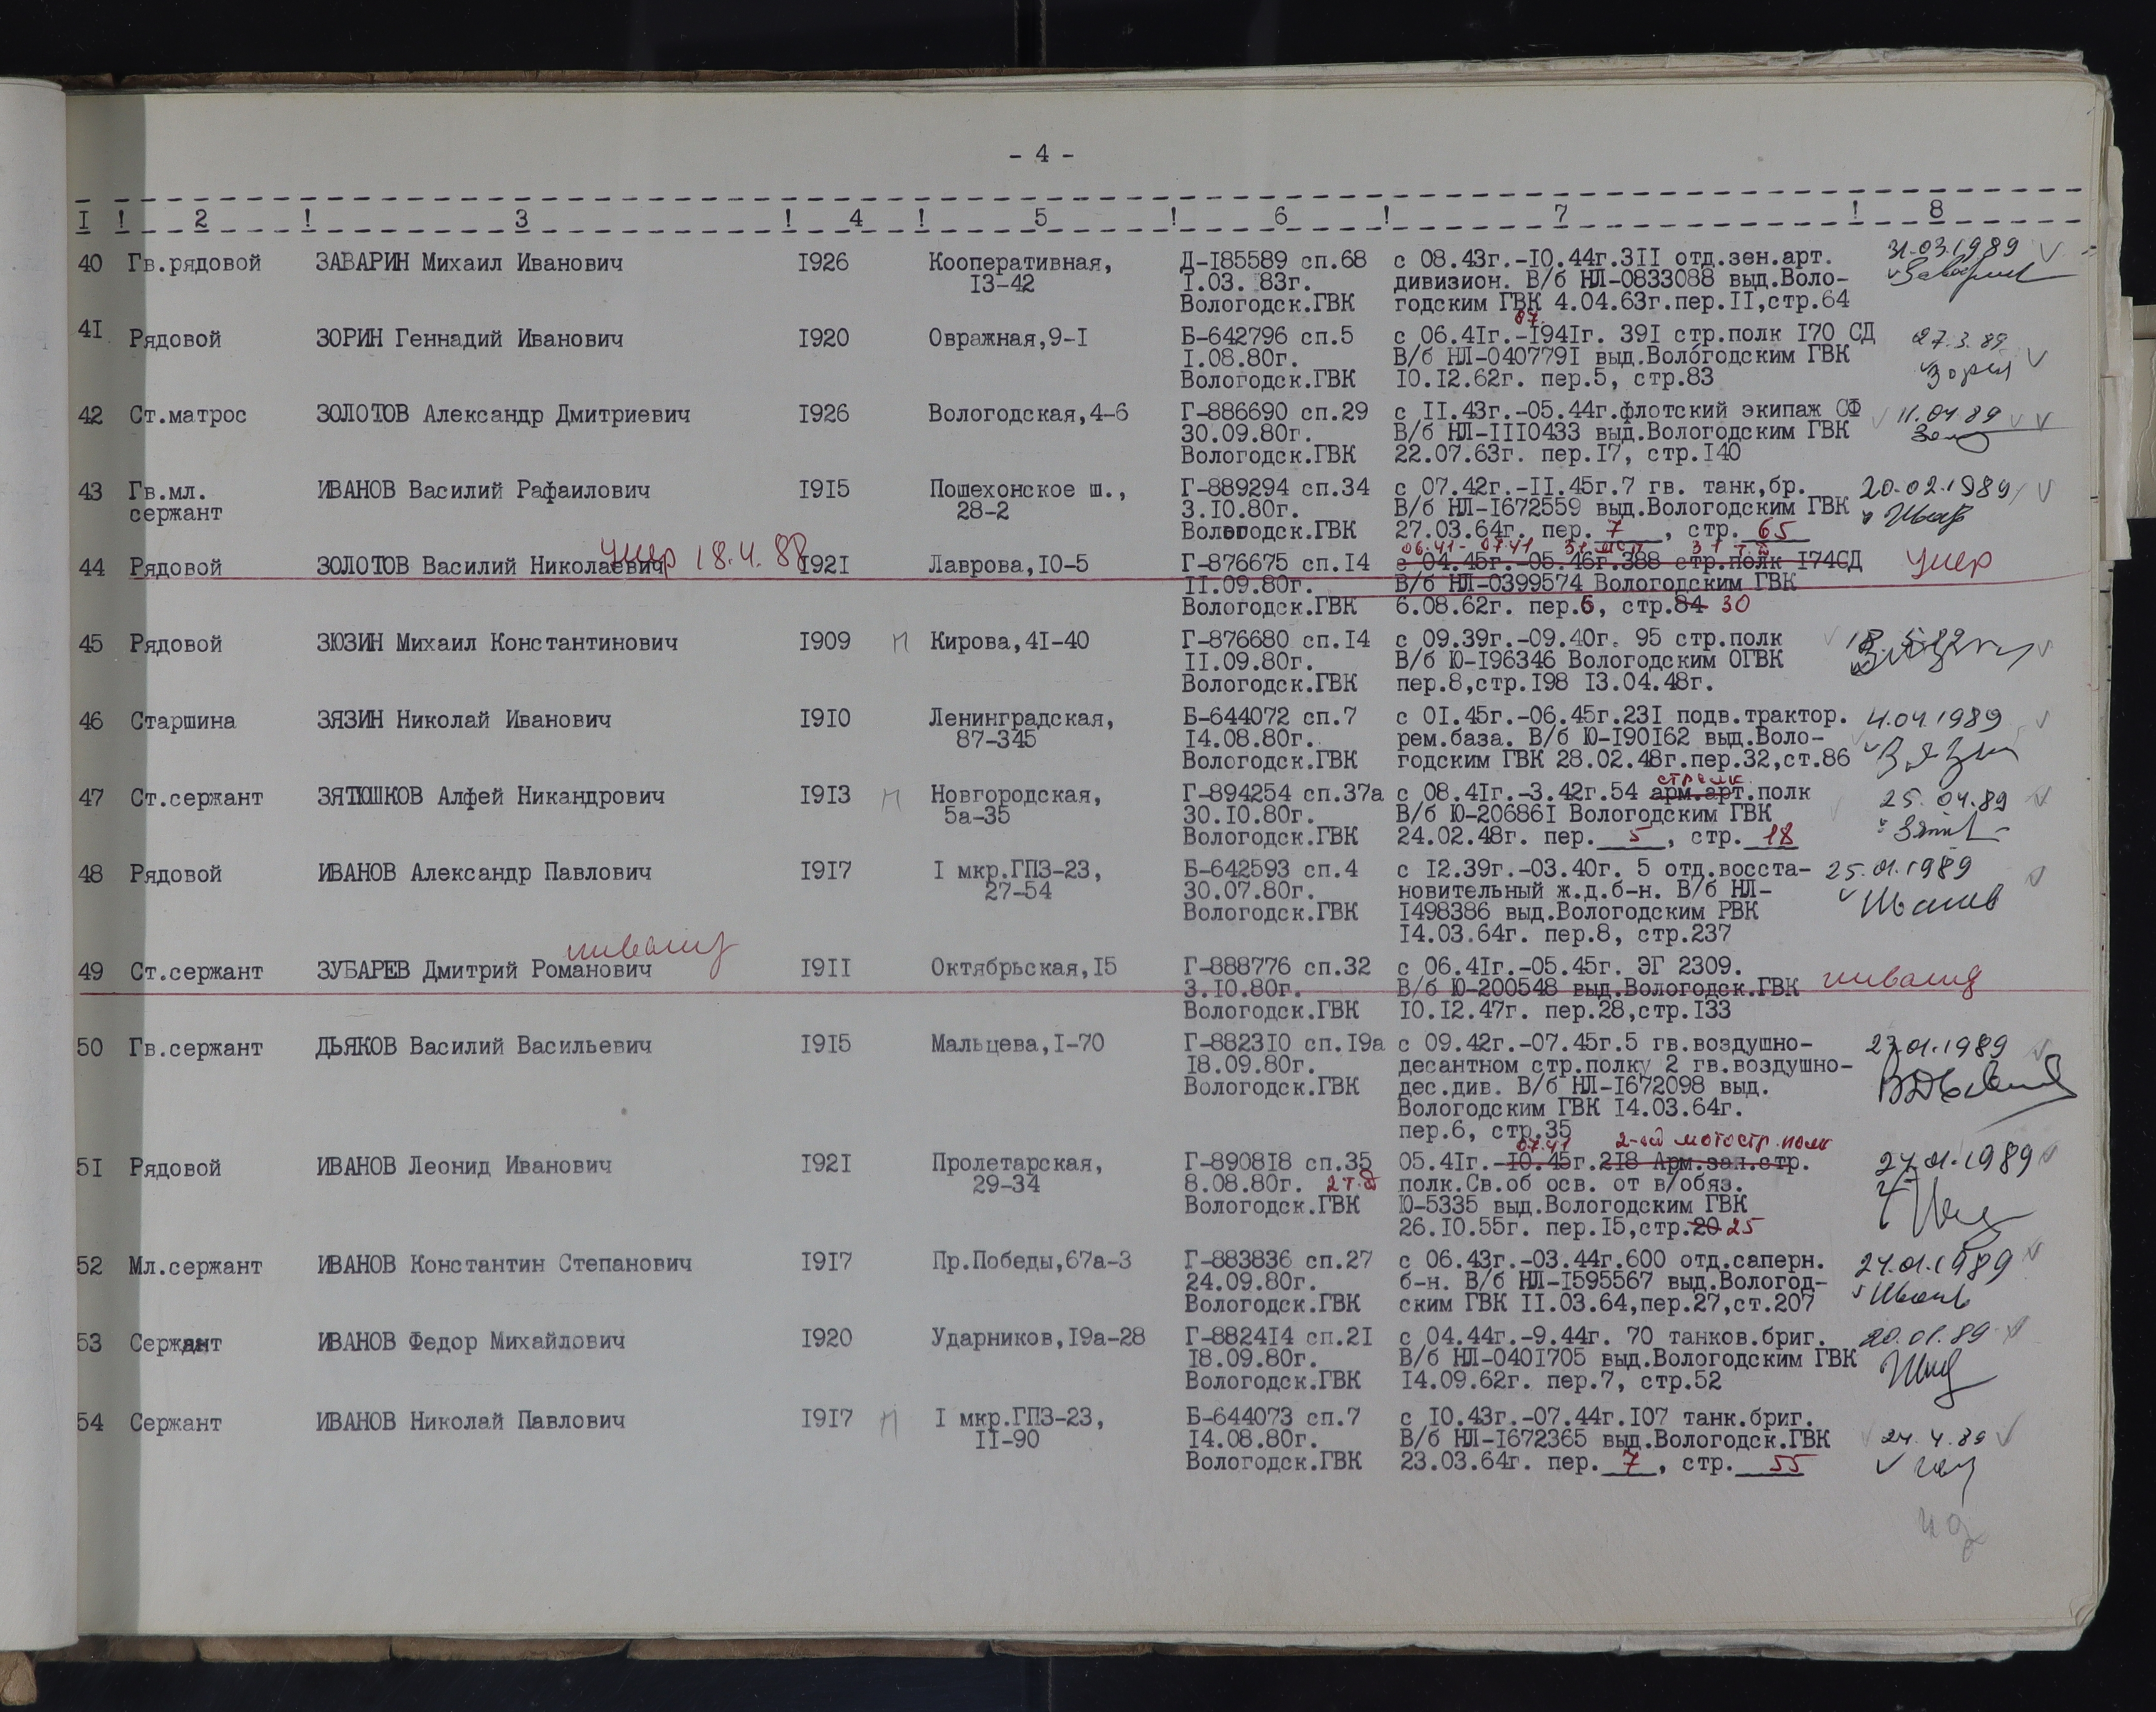 - 4 -
I ! 2 ! 3 ! 4 ! 5 ! 6 ! 7 ! 8
40 Гв.рядовой ЗАВАРИН Михаил Иванович I926 Кооперативная, Д-I85589 сп.68 с 08.43г.-IO.44г.3II отд.зен.арт. 31.03.1989
I3-42 I.03. 83г. дивизион. В/б НЛ-0833088 выд.Воло-
Вологодск.ГВК годским ГВК 4.04.63г.пер.II,стр.64
07.
4I Рядовой ЗОРИН Геннадий Иванович I920 Овражная,9-I Б-642796 сп.5 с 06.4Iг.-I94Iг. 39I стр.полк I70 СД 27.3.89
I.08.80г. В/б НЛ-040779I выд.Вологодским ГВК
Вологодск.ГВК IO.I2.62г. пер.5, стр.83
42 Ст.матрос ЗОЛОТОВ Александр Дмитриевич I926 Вологодская,4-6 Г-886690 сп.29 с II.43г.-05.44г.флотский экипаж СФ 11.04.89
30.09.80г. В/б НЛ-IIIO433 выд.Вологодским ГВК
Вологодск.ГВК 22.07.63г. пер.I7, стр.I40
43 Гв.мл. ИВАНОВ Василий Рафаилович I9I5 Пошехонское ш., Г-889294 сп.34 с 07.42г.-II.45г.7 гв. танк,бр. 20.02.1989
сержант 28-2 3.IO.80г. В/б НЛ-I672559 выд.Вологодским ГВК
Вологодск.ГВК 27.03.64г. пер. 7 , стр. 65
умер 18.4.88 06.41- 07.41 31 мсп 31 т.д
44 Рядовой ЗОЛОТОВ Василий Николаевич I92I Лаврова,IO-5 Г-876675 сп.I4 с 04.45г.-05.46г.388 стр.полк I74СД умер
II.09.80г. В/б НЛ-0399574 Вологодским ГВК
Вологодск.ГВК 6.08.62г. пер.6, стр.84 30
45 Рядовой ЗЮЗИН Михаил Константинович I909 П Кирова,4I-40 Г-876680 сп.I4 с 09.39г.-09.40г. 95 стр.полк
II.09.80г. В/б Ю-I96346 Вологодским ОГВК
Вологодск.ГВК пер.8,стр.I98 I3.04.48г.
46 Старшина ЗЯЗИН Николай Иванович I9IO Ленинградская, Б-644072 сп.7 с OI.45г.-06.45г.23I подв.трактор. 4.04.1989
87-345 I4.08.80г. рем.база. В/б Ю-I90I62 выд.Воло-
Вологодск.ГВК годским ГВК 28.02.48г.пер.32,ст.86
стрелк.
47 Ст.сержант ЗЯТЮШКОВ Алфей Никандрович I9I3 П Новгородская, Г-894254 сп.37а с 08.4Iг.-3.42г.54 арм.арт.полк 25.04.89
5а-35 30.IO.80г. В/б Ю-20686I Вологодским ГВК
Вологодск.ГВК 24.02.48г. пер. 5 , стр. 18
48 Рядовой ИВАНОВ Александр Павлович I9I7 I мкр.ГПЗ-23, Б-642593 сп.4 с I2.39г.-03.40г. 5 отд.восста- 25.01.1989
27-54 30.07.80г. новительный ж.д.б-н. В/б НЛ-
Вологодск.ГВК I498386 выд.Вологодским РВК
I4.03.64г. пер.8, стр.237
инвалид
49 Ст.сержант ЗУБАРЕВ Дмитрий Романович I9II Октябрьская,I5 Г-888776 сп.32 с 06.4Iг.-05.45г. ЭГ 2309. инвалид
3.IO.80г. В/б Ю-200548 выд.Вологодск.ГВК
Вологодск.ГВК IO.I2.47г. пер.28,стр.I33
50 Гв.сержант ДЬЯКОВ Василий Васильевич I9I5 Мальцева,I-70 Г-8823IO сп.I9а с 09.42г.-07.45г.5 гв.воздушно- 27.01.1989
I8.09.80г. десантном стр.полку 2 гв.воздушно-
Вологодск.ГВК дес.див. В/б НЛ-I672098 выд.
Вологодским ГВК I4.03.64г.
пер.6, стр.35
07.41 2-ой мотостр.полк
5I Рядовой ИВАНОВ Леонид Иванович I92I Пролетарская, Г-8908I8 сп.35 05.4Iг.-IO.45г.2I8 Арм.зап.стр. 27.01.1989
29-34 8.08.80г. 2 т.д полк.Св.об осв. от в/обяз.
Вологодск.ГВК Ю-5335 выд.Вологодским ГВК
26.IO.55г. пер.I5,стр.20 25
52 Мл.сержант ИВАНОВ Константин Степанович I9I7 Пр.Победы,67а-3 Г-883836 сп.27 с 06.43г.-03.44г.600 отд.саперн. 24.01.1989
24.09.80г. б-н. В/б НЛ-I595567 выд.Вологод-
Вологодск.ГВК ским ГВК II.03.64,пер.27,ст.207
53 Сержант ИВАНОВ Федор Михайлович I920 Ударников,I9а-28 Г-8824I4 сп.2I с 04.44г.-9.44г. 70 танков.бриг. 20.01.89
I8.09.80г. В/б НЛ-040I705 выд.Вологодским ГВК
Вологодск.ГВК I4.09.62г. пер.7, стр.52
54 Сержант ИВАНОВ Николай Павлович I9I7 П I мкр.ГПЗ-23, Б-644073 сп.7 с IO.43г.-07.44г.I07 танк.бриг.
II-90 I4.08.80г. В/б НЛ-I672365 выд.Вологодск.ГВК 24.4.89
Вологодск.ГВК 23.03.64г. пер. 7 , стр. 55